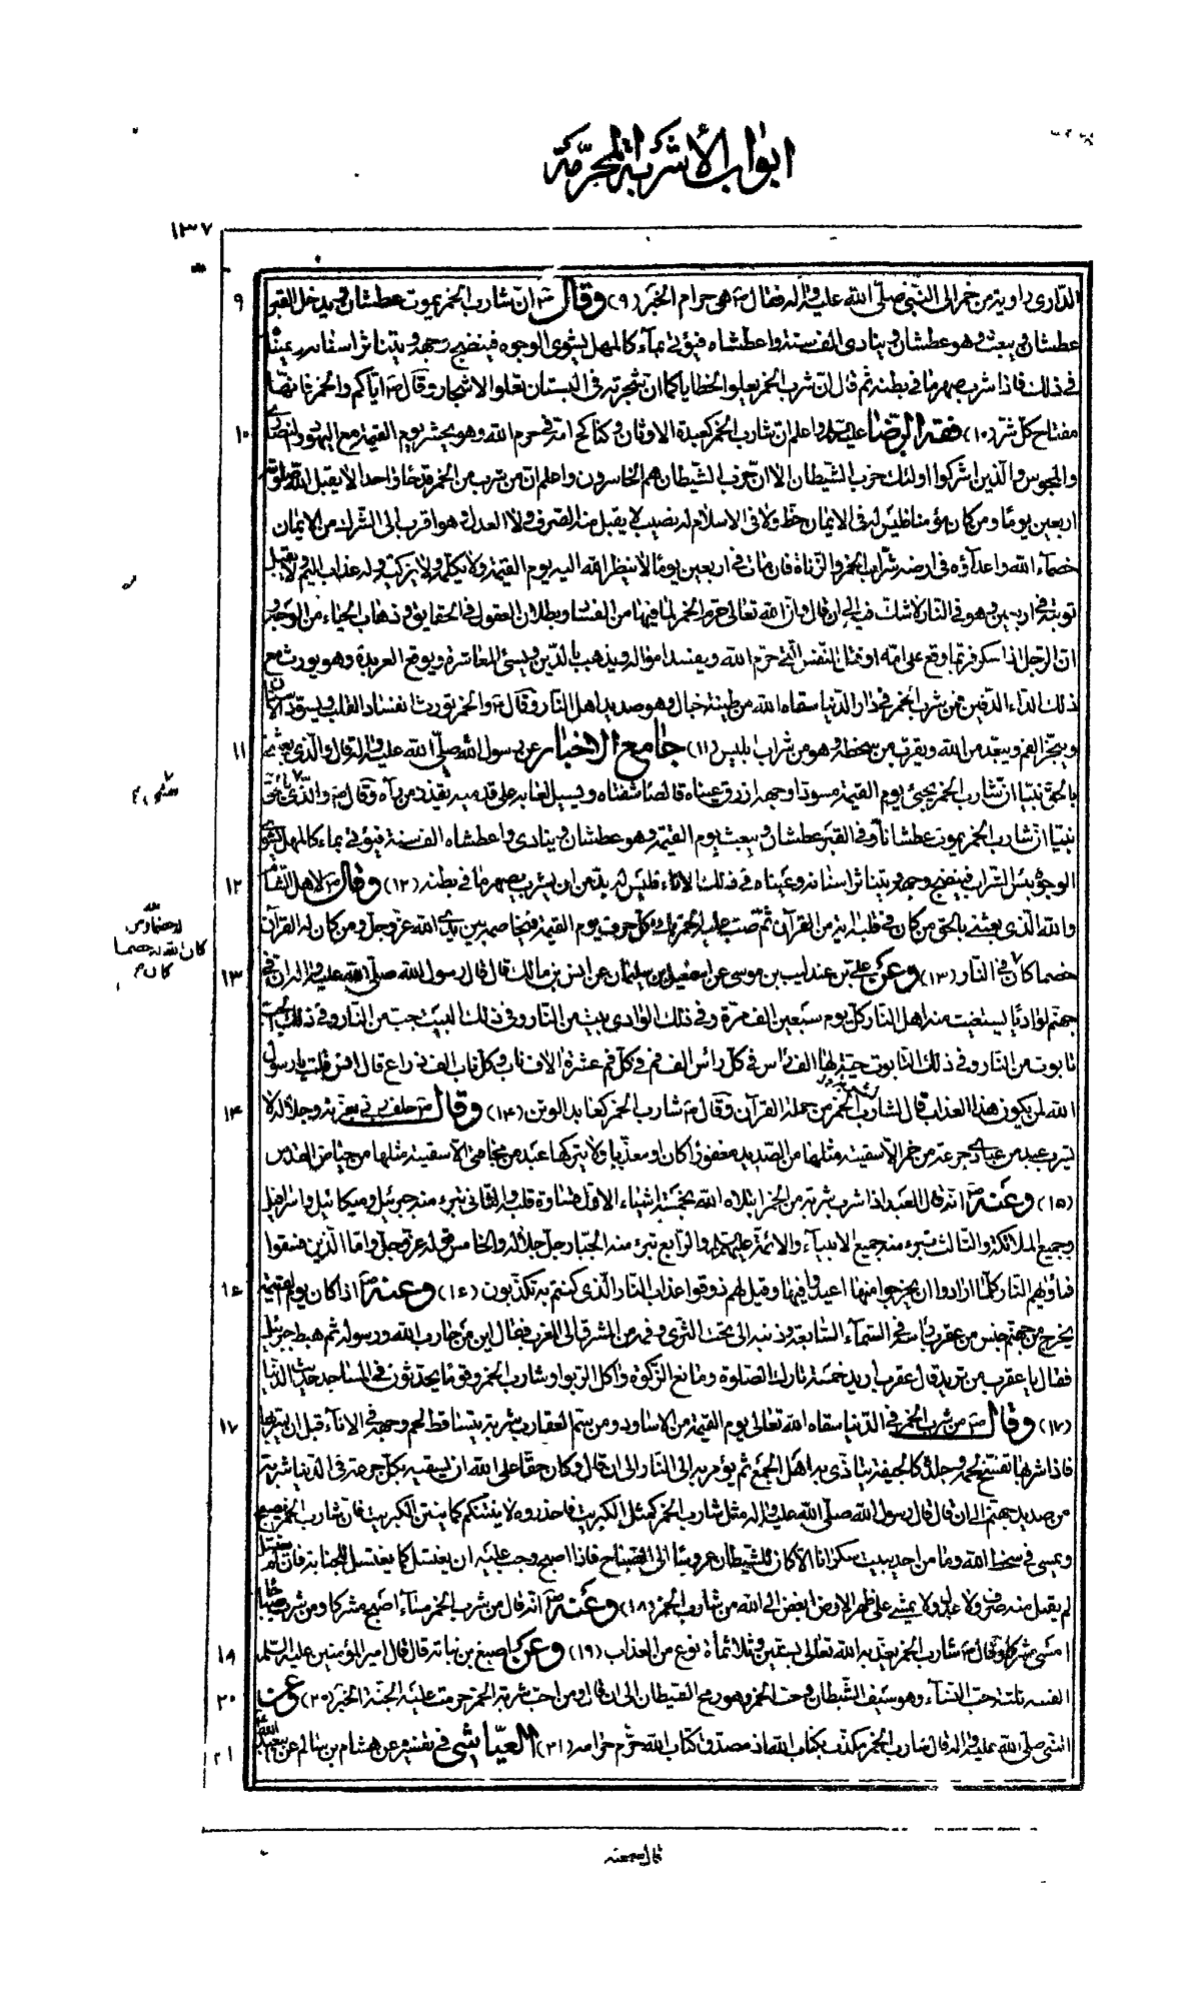 ابواب الأشربة المحرّمة
١٣٧
الدّارى راوية من خمر الى النّبىّ صلّى الله عليه واله فقال ص هى حرام الخبر (٩) وقال ص انّ شارب الخمر يموت عطشان ويدخل القبر ٩
عطشان ويبعث وهو عطشان وينادى الف سنة واعطشاه فيؤتى بمآء كالمهل يشوى الوجوه فينضج وجهه ويتناثر اسنانه
فى ذلك فاذا شرب صهر ما فى بطنه ثم قال انّ شرب الخمر يعلو الخطايا كما انّ شجرته فى البستان تعلو الاشجار وقال ص ايّاكم والخمر فانّها
مفتاح كل شر (١٠) فقه الرّضا عليه السلام واعلم انّ شارب الخمر كعبدة الاوثان وكناكح امّه فى حرم الله وهو يحشر يوم القيمة مع اليهود والنصارى ١٠
والمجوس والّذين اشركوا اولئك حزب الشّيطان الا انّ حزب الشّيطان هم الخاسرون واعلم انّ من شرب من الخمر قدحا واحدا لا يقبل الله صلوته
اربعين يوما ومن كان مؤمنا فليس له فى الايمان حظّ ولا فى الاسلام له نصيب لا يقبل منه الصّرف ولا العدل وهو اقرب الى الشّرك من الايمان
خصمآء الله واعدآؤه فى ارضه شرّاب الخمر والزّناة فان مات فى اربعين يوما لا ينظر الله اليه يوم القيمة ولا يكلّمه ولا يزكّيه وله عذاب اليم ولا يقبل
توبته فى اربعين وهو فى النّار لا شكّ فيه الى ان قال وانّ الله تعالى حرّم الخمر لما فيها من الفساد وبطلان العقول فى الحقايق وذهاب الحياء من الوجه و
انّ الرّجل اذا سكر فربّما وقع على امّه او قتل النّفس الّتى حرّم الله ويفسد امواله ويذهب بالدّين ويسئ المعاشرة ويوقع العربدة وهو يورث مع
ذلك الدّاء الدّفين فمن شرب الخمر فى دار الدّنيا سقاه الله من طينة خبال وهو صديد اهل النّار وقال ع والخمر تورث فساد القلب ويسوّد الأسنان
ويبخر الفم ويبعد من الله ويقرّب من سخطه وهو من شراب ابليس (١١) جامع الاخبار عن رسول الله صلّى الله عليه واله قال والّذى بعثنى ١١
بالحقّ نبيّا انّ شارب الخمر يجئ يوم القيمة مسودّا وجهه ازرق عيناه قالصا شفتاه ويسيل لعابه على قدميه يقذر من رآه وقال ص والّذى بعثنى بالحقّ
نبيّا انّ شارب الخمر يموت عطشانا وفى القبر عطشان ويبعث يوم القيمة وهو عطشان وينادى واعطشاه الف سنة فيؤتى بماء كالمهل يشوى
الوجوه بئس الشّراب فينضج وجهه ويتناثر اسنانه وعيناه فى ذلك الاناء فليس له بدّ من ان يشرب فيصهر ما فى بطنه (١٢) وقال ص لاهل ١٢
والله الّذى بعثنى بالحق من كان فى قلبه اية من القرآن ثمّ صبّ عليه الخمر كل حرف يوم القيمة فيخاصمه بين يدى الله عزّ وجل ومن كان له القرآن
خصما كان فى النار (١٣) وعن علىّ بن عندليب بن موسى عن اسمعيل بن سليمان عن انس بن مالك قال قال رسول الله صلّى الله عليه واله انّ فى ١٣
جهنم لواديا يستغيث منه اهل النّار كلّ يوم سبعين الف مرّة وفى ذلك الوادى بيت من النّار وفى ذلك البيت جبّ من النّار وفى ذلك الجبّ
تابوت من النّار وفى ذلك التّابوت حيّة لها الف راس فى كلّ راس الف فم فى كلّ فم عشرة الاف ناب وكلّ ناب الف ذراع قال انس قلت يا رسول
الله لمن يكون هذا العذاب قال لشارب الخمر من حملة القرآن وقال ص شارب الخمر كعابد الوثن (١٤) وقال ص حلف ربّى بعزّته وجلاله لا ١٤
يشرب عبد من عبادى جرعة من خمر الا سقيته مثلها من الصّديد مغفورا كان او معذّبا ولا يتركها عبد من مخافتى الا سقيته مثلها من حياض القدس
(١٥) وعنه ص انّه قال العبد اذا شرب شربة من الخمر ابتلاه الله بخمسة اشياء الاوّل قساوة قلبه والثّانى تبرّء منه جبرئيل وميكائيل واسرافيل
وجميع الملائكة والثّالث تبرّء منه جميع الانبياء والائمّة عليهم السلام والرّابع تبرّء منه الجبّار جلّ جلاله والخامس قوله عزّ وجلّ وامّا الّذين فسقوا
فمأويهم النّار كلّما ارادوا ان يخرجوا منها اعيدوا فيها وقيل لهم ذوقوا عذاب النّار الّذى كنتم به تكذّبون (١٦) وعنه ص اذا كان يوم القيمة ١٦
يخرج من جهنّم جنس من عقرب راسه فى السّمآء السّابعة وذنبه الى تحت الثّرى وفمه من المشرق الى المغرب فقال اين من حارب الله ورسوله ثم هبط جبرئيل
فقال يا عقرب من تريد قال عقرب اريد خمسة تارك الصّلوة ومانع الزّكوة واكل الرّبوا وشارب الخمر وقوما يحدّثون فى المساجد حديث الدّنيا
(١٧) وقال ص من شرب الخمر فى الدّنيا سقاه الله تعالى يوم القيمة من الاساود ومن سمّ العقارب شربة يتساقط لحم وجهه فى الاناء قبل ان يشربها ١٧
فاذا شربها تفسّخ لحمه وجلده كالجيفة يتأذّى به اهل الجمع ثم يؤمر به الى النّار الى ان قال وكان حقّا على الله ان يسقيه بكلّ جرعة فى الدّنيا شربة
من صديد جهنّم الى ان قال قال رسول الله صلّى الله عليه واله مثل شارب الخمر كمثل الكبريت فاحذروه لا ينتنكم كما ينتن الكبريت فانّ شارب الخمر يصبح
ويمسى فى سخط الله وما من احد يبيت سكرانا الا كان للشّيطان عروسا الى الصّباح فاذا اصبح وجب عليه ان يغتسل كما يغتسل للجنابة فان لم يغتسل
لم يقبل منه صرف ولا عدل ولا يمشى على ظهر الارض ابغض الى الله من شارب الخمر (١٨) وعنه ص انّه قال من شرب الخمر مسآء اصبح مشركا ومن شرب صباحا
امسى مشركا وقال ص شارب الخمر يعذّبه الله تعالى بستّين وثلاثمأة نوع من العذاب (١٩) وعن اصبغ بن نباتة قال قال امير المؤمنين عليه السلام ١٩
الفتنة ثلثة حبّ النّسآء وهو سيف الشّيطان وحبّ الخمر وهو رمح الشّيطان الى ان قال ومن احبّ شربة الخمر حرمت عليه الجنّة الخبر (٢٠) وعن ٢٠
النّبى صلّى الله عليه واله قال شارب الخمر مكذّب بكتاب الله اذ مصدّق كتاب الله حرّم حرامه (٢١) العيّاشى فى تفسيره عن هشام بن سالم عن ٢١